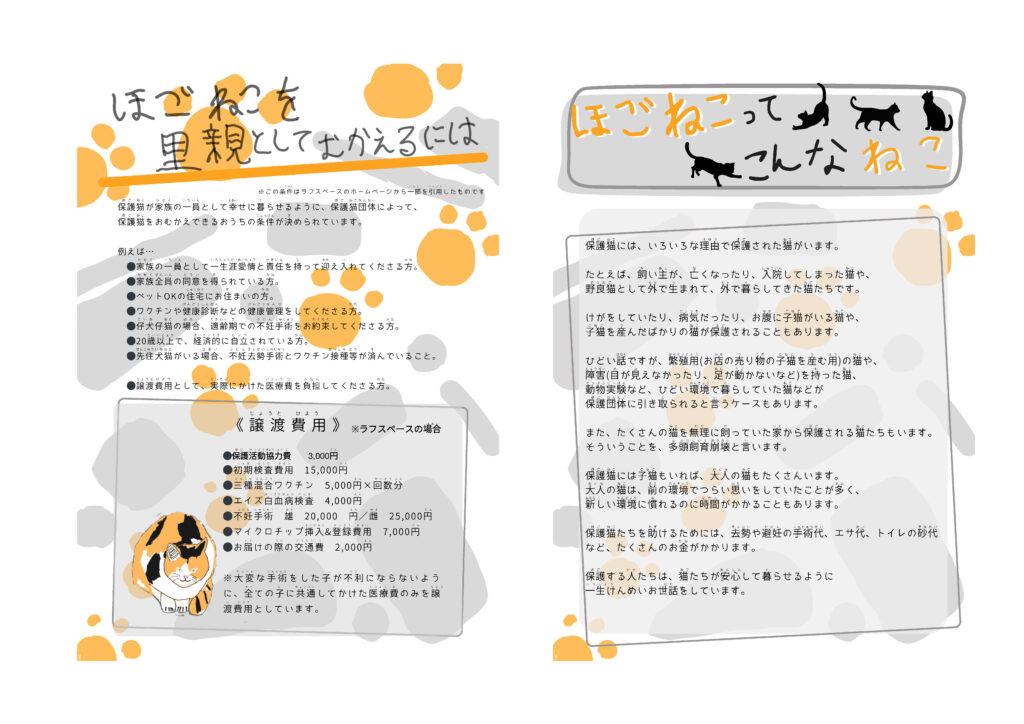 ほごねこを
里親としてむかえるには
※この条件はラフスペースのホームページから一部を引用したものです
保護猫が家族の一員として幸せに暮らせるように、保護猫団体によって、
保護猫をおむかえできるおうちの条件が決められています。
例えば…
●家族の一員として一生涯愛情と責任を持って迎え入れてくださる方。
●家族全員の同意を得られている方。
●ペットOKの住宅にお住まいの方。
●ワクチンや健康診断などの健康管理をしてくださる方。
●仔犬仔猫の場合、適齢期での不妊手術をお約束してくださる方。
●20歳以上で、経済的に自立されている方。
●先住犬猫がいる場合、不妊去勢手術とワクチン接種等が済んでいること。
●譲渡費用として、実際にかけた医療費を負担してくださる方。
《譲渡費用》 ※ラフスペースの場合
●保護活動協力費 3,000円
●初期検査費用 15,000円
●三種混合ワクチン 5,000円×回数分
●エイズ白血病検査 4,000円
●不妊手術 雄 20,000 円／雌 25,000円
●マイクロチップ挿入&登録費用 7,000円
●お届けの際の交通費 2,000円
※大変な手術をした子が不利にならないよう
に、全ての子に共通してかけた医療費のみを譲
渡費用としています。
ほごねこって
こんなねこ
保護猫には、いろいろな理由で保護された猫がいます。
たとえば、飼い主が、亡くなったり、入院してしまった猫や、
野良猫として外で生まれて、外で暮らしてきた猫たちです。
けがをしていたり、病気だったり、お腹に子猫がいる猫や、
子猫を産んだばかりの猫が保護されることもあります。
ひどい話ですが、繁殖用(お店の売り物の子猫を産む用)の猫や、
障害(目が見えなかったり、足が動かないなど)を持った猫、
動物実験など、ひどい環境で暮らしていた猫などが
保護団体に引き取られると言うケースもあります。
また、たくさんの猫を無理に飼っていた家から保護される猫たちもいます。
そういうことを、多頭飼育崩壊と言います。
保護猫には子猫もいれば、大人の猫もたくさんいます。
大人の猫は、前の環境でつらい思いをしていたことが多く、
新しい環境に慣れるのに時間がかかることもあります。
保護猫たちを助けるためには、去勢や避妊の手術代、エサ代、トイレの砂代
など、たくさんのお金がかかります。
保護する人たちは、猫たちが安心して暮らせるように
一生けんめいお世話をしています。